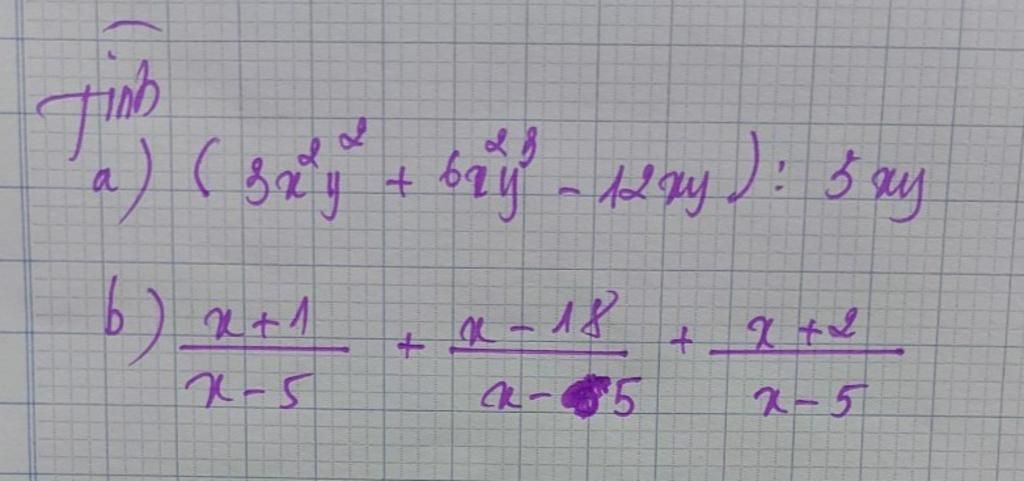 Tính
a) (3x²y² + 6x²y³ - 12xy) : 3xy
b) \frac{x+1}{x-5} + \frac{x-18}{x-5} + \frac{x+2}{x-5}